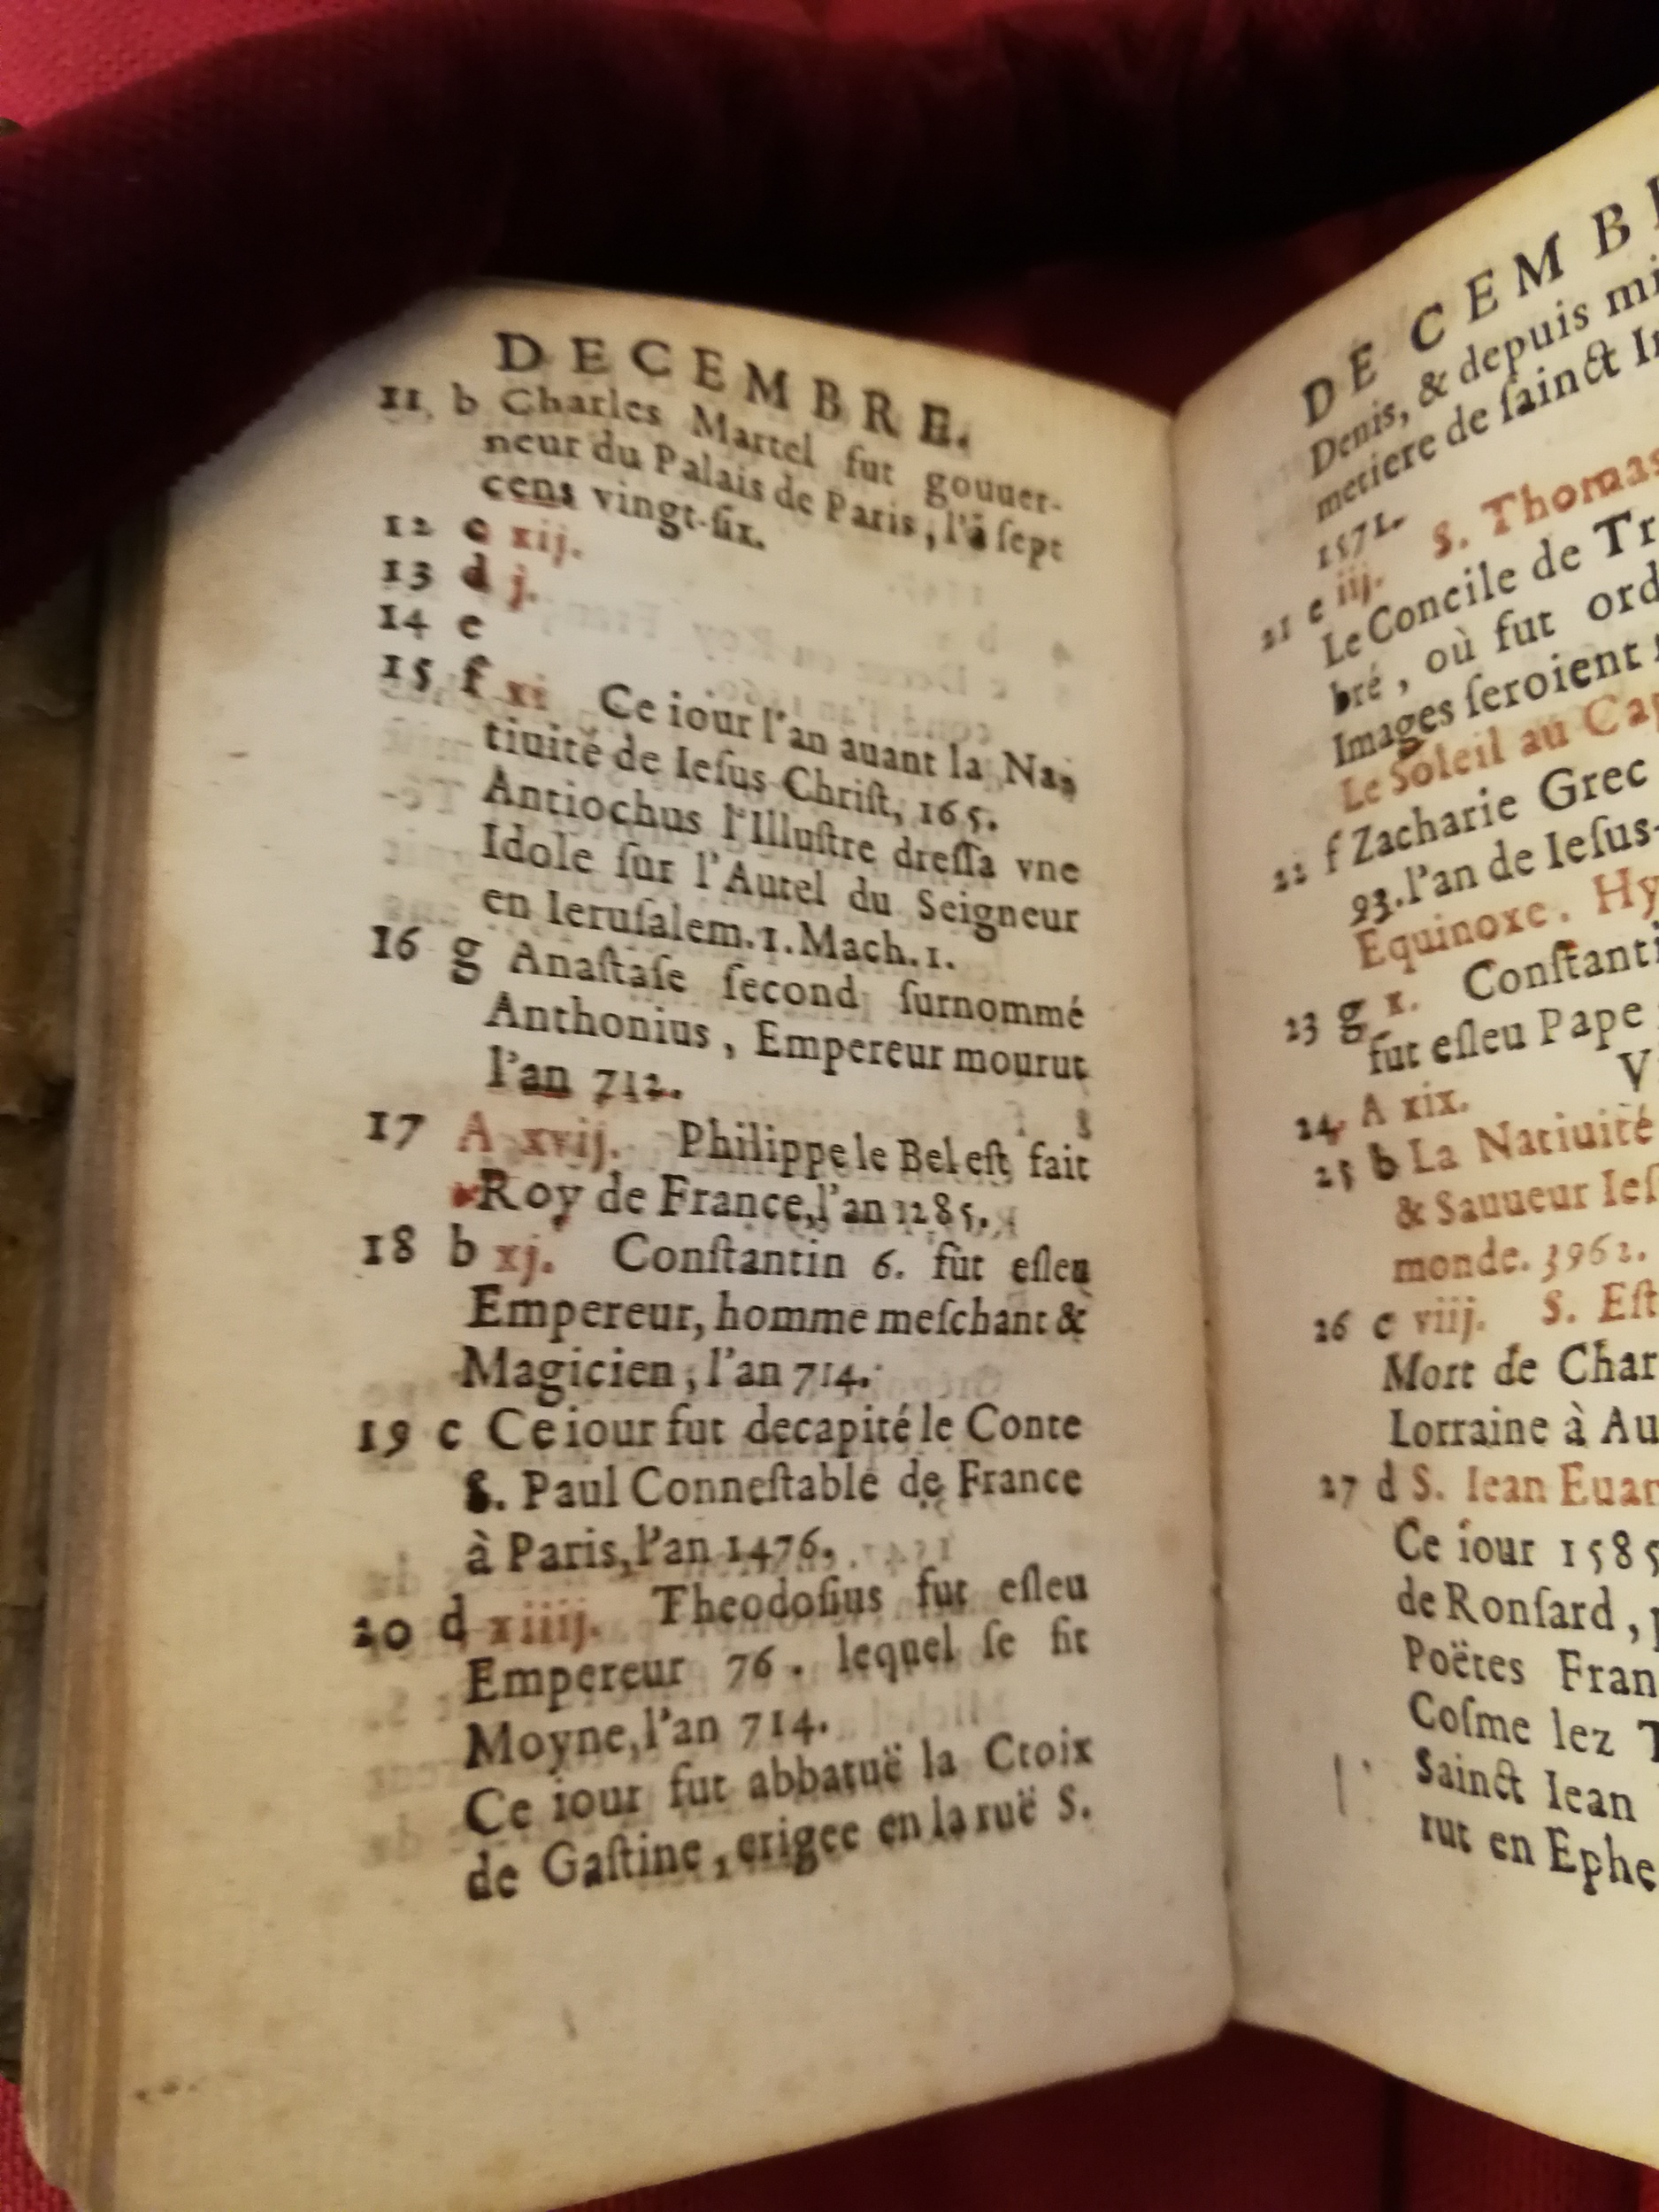 DECEMBRE.
11 b Charles Martel fut gouuer-
neur du Palais de Paris, l'ã ſept
cens vingt-ſix.
12 c xij.
13 d j.
14 e
15 f xi Ce iour l'an auant la Na-
tiuité de Ieſus Chriſt, 165.
Antiochus l'Illuſtre dreſſa vne
Idole ſur l'Autel du Seigneur
en Ieruſalem. 1. Mach. 1.
16 g Anaſtaſe ſecond ſurnommé
Anthonius, Empereur mourut
l'an 712.
17 A xvij. Philippe le Bel eſt fait
Roy de France, l'an 1285.
18 b xj. Conſtantin 6. fut eſleu
Empereur, homme meſchant &
Magicien, l'an 714.
19 c Ce iour fut decapité le Conte
S. Paul Conneſtable de France
à Paris, l'an 1476.
20 d xiiij. Theodoſius fut eſleu
Empereur 76. lequel ſe fit
Moyne, l'an 714.
Ce iour fut abbatuë la Croix
de Gaſtine, erigee en la ruë S.
DECEMB
Denis, & depuis mi
metiere de ſainct I
1571.
S. Thomas
21 e iij.
Le Concile de Tr
bré, où fut ord
Images ſeroient
Le Soleil au Cap
22 f Zacharie Grec
93. l'an de Ieſus-
Equinoxe. Hy
23 g x. Conſtanti
fut eſleu Pape
V
24 A xix.
25 b La Natiuité
& Sauueur Ieſ
monde. 3962.
26 c viij. S. Eſt
Mort de Char
Lorraine à Au
27 d S. Iean Euan
Ce iour 1585
de Ronſard, p
Poëtes Fran
Coſme lez T
Sainct Iean
rut en Ephe